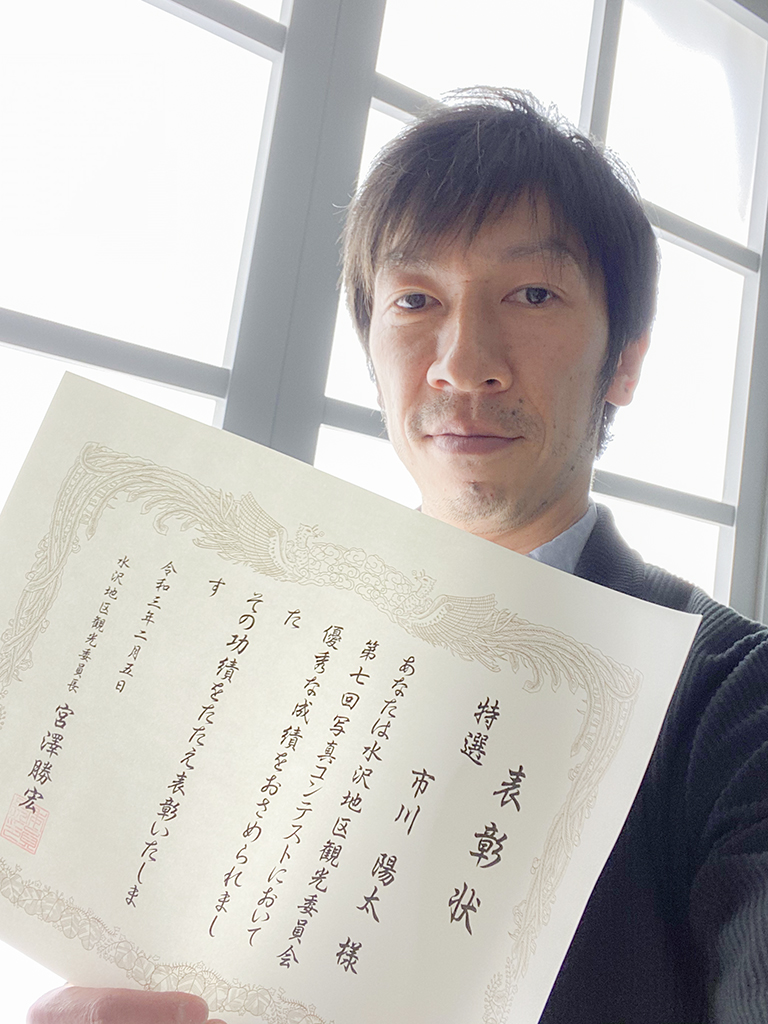 表彰状
特選
市川 陽太 様
あなたは水沢地区観光委員会
第七回写真コンテストにおいて
優秀な成績をおさめられまし
た
その功績をたたえ表彰いたしま
す
令和三年二月五日
水沢地区観光委員長 宮澤勝宏